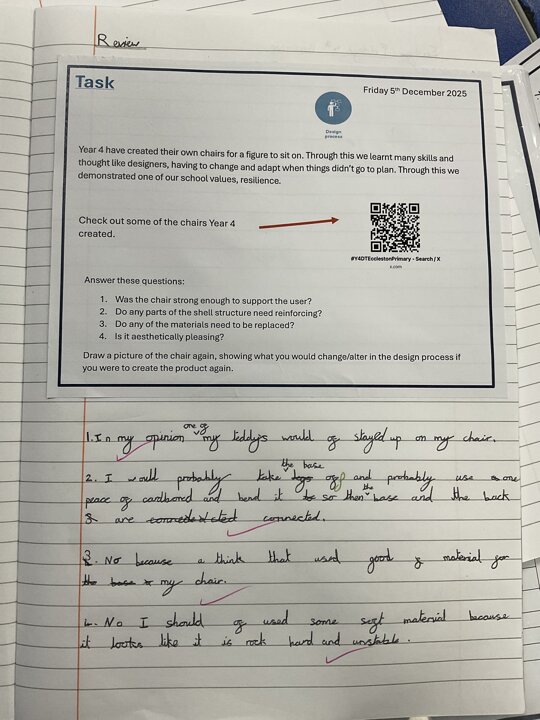 Review
Task
Friday 5th December 2025
Design
process
Year 4 have created their own chairs for a figure to sit on. Through this we learnt many skills and
thought like designers, having to change and adapt when things didn't go to plan. Through this we
demonstrated one of our school values, resilience.
Check out some of the chairs Year 4
created.
#Y4DTEcclestonPrimary - Search / X
x.com
Answer these questions:
1. Was the chair strong enough to support the user?
2. Do any parts of the shell structure need reinforcing?
3. Do any of the materials need to be replaced?
4. Is it aesthetically pleasing?
Draw a picture of the chair again, showing what you would change/alter in the design process if
you were to create the product again.
one of
1. In my opinion my teddys would of stayed up on my chair.
the base
2. I would probably take off and probably use one
the
peace of cardbored and bend it so then base and the back
are connected.
3. No because a think that used good material for
my chair.
4. No I should of used some soft material because
it looks like it is rock hard and unstable.